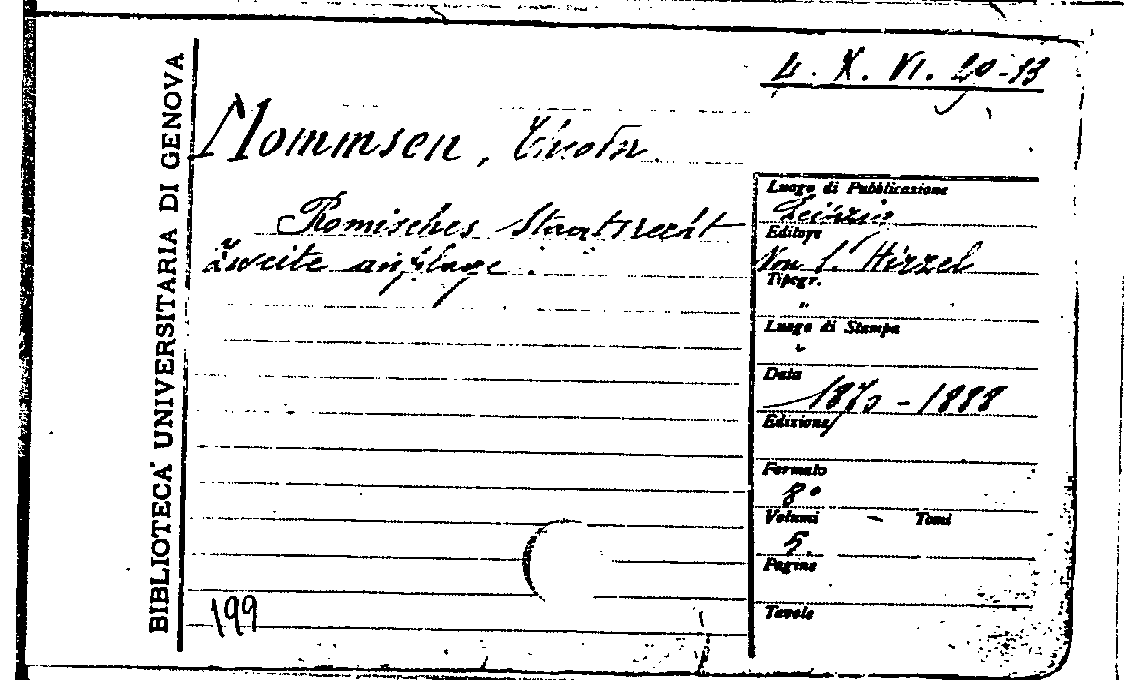 BIBLIOTECA UNIVERSITARIA DI GENOVA
4. X. VI.
Mommsen,
Romisches Staatsrecht
Zweite auflage.
Luogo di Pubblicazione
Leipzig
Editore
Von S. Hirzel
Tipogr.
"
Luogo di Stampa
"
Data
- 1888
Edizione
Formato
8°
Volumi - Tomi
5.
Pagine
Tavole
199